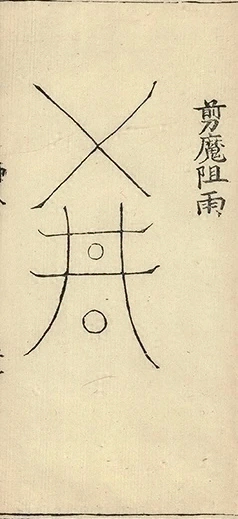 剪魔阻雨